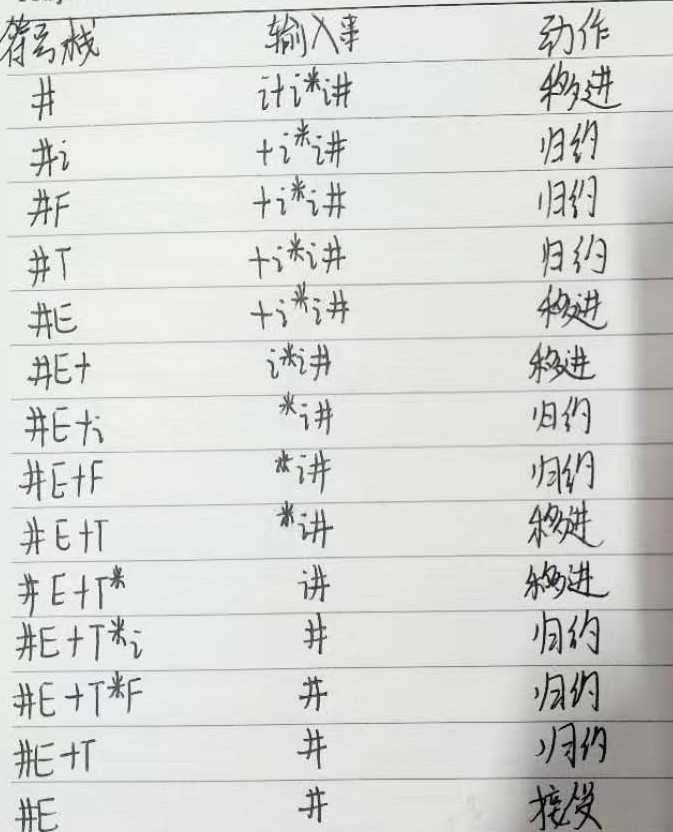 符号栈 输入串 动作
# i+i*i# 移进
#i +i*i# 归约
#F +i*i# 归约
#T +i*i# 归约
#E +i*i# 移进
#E+ i*i# 移进
#E+i *i# 归约
#E+F *i# 归约
#E+T *i# 移进
#E+T* i# 移进
#E+T*i # 归约
#E+T*F # 归约
#E+T # 归约
#E # 接受